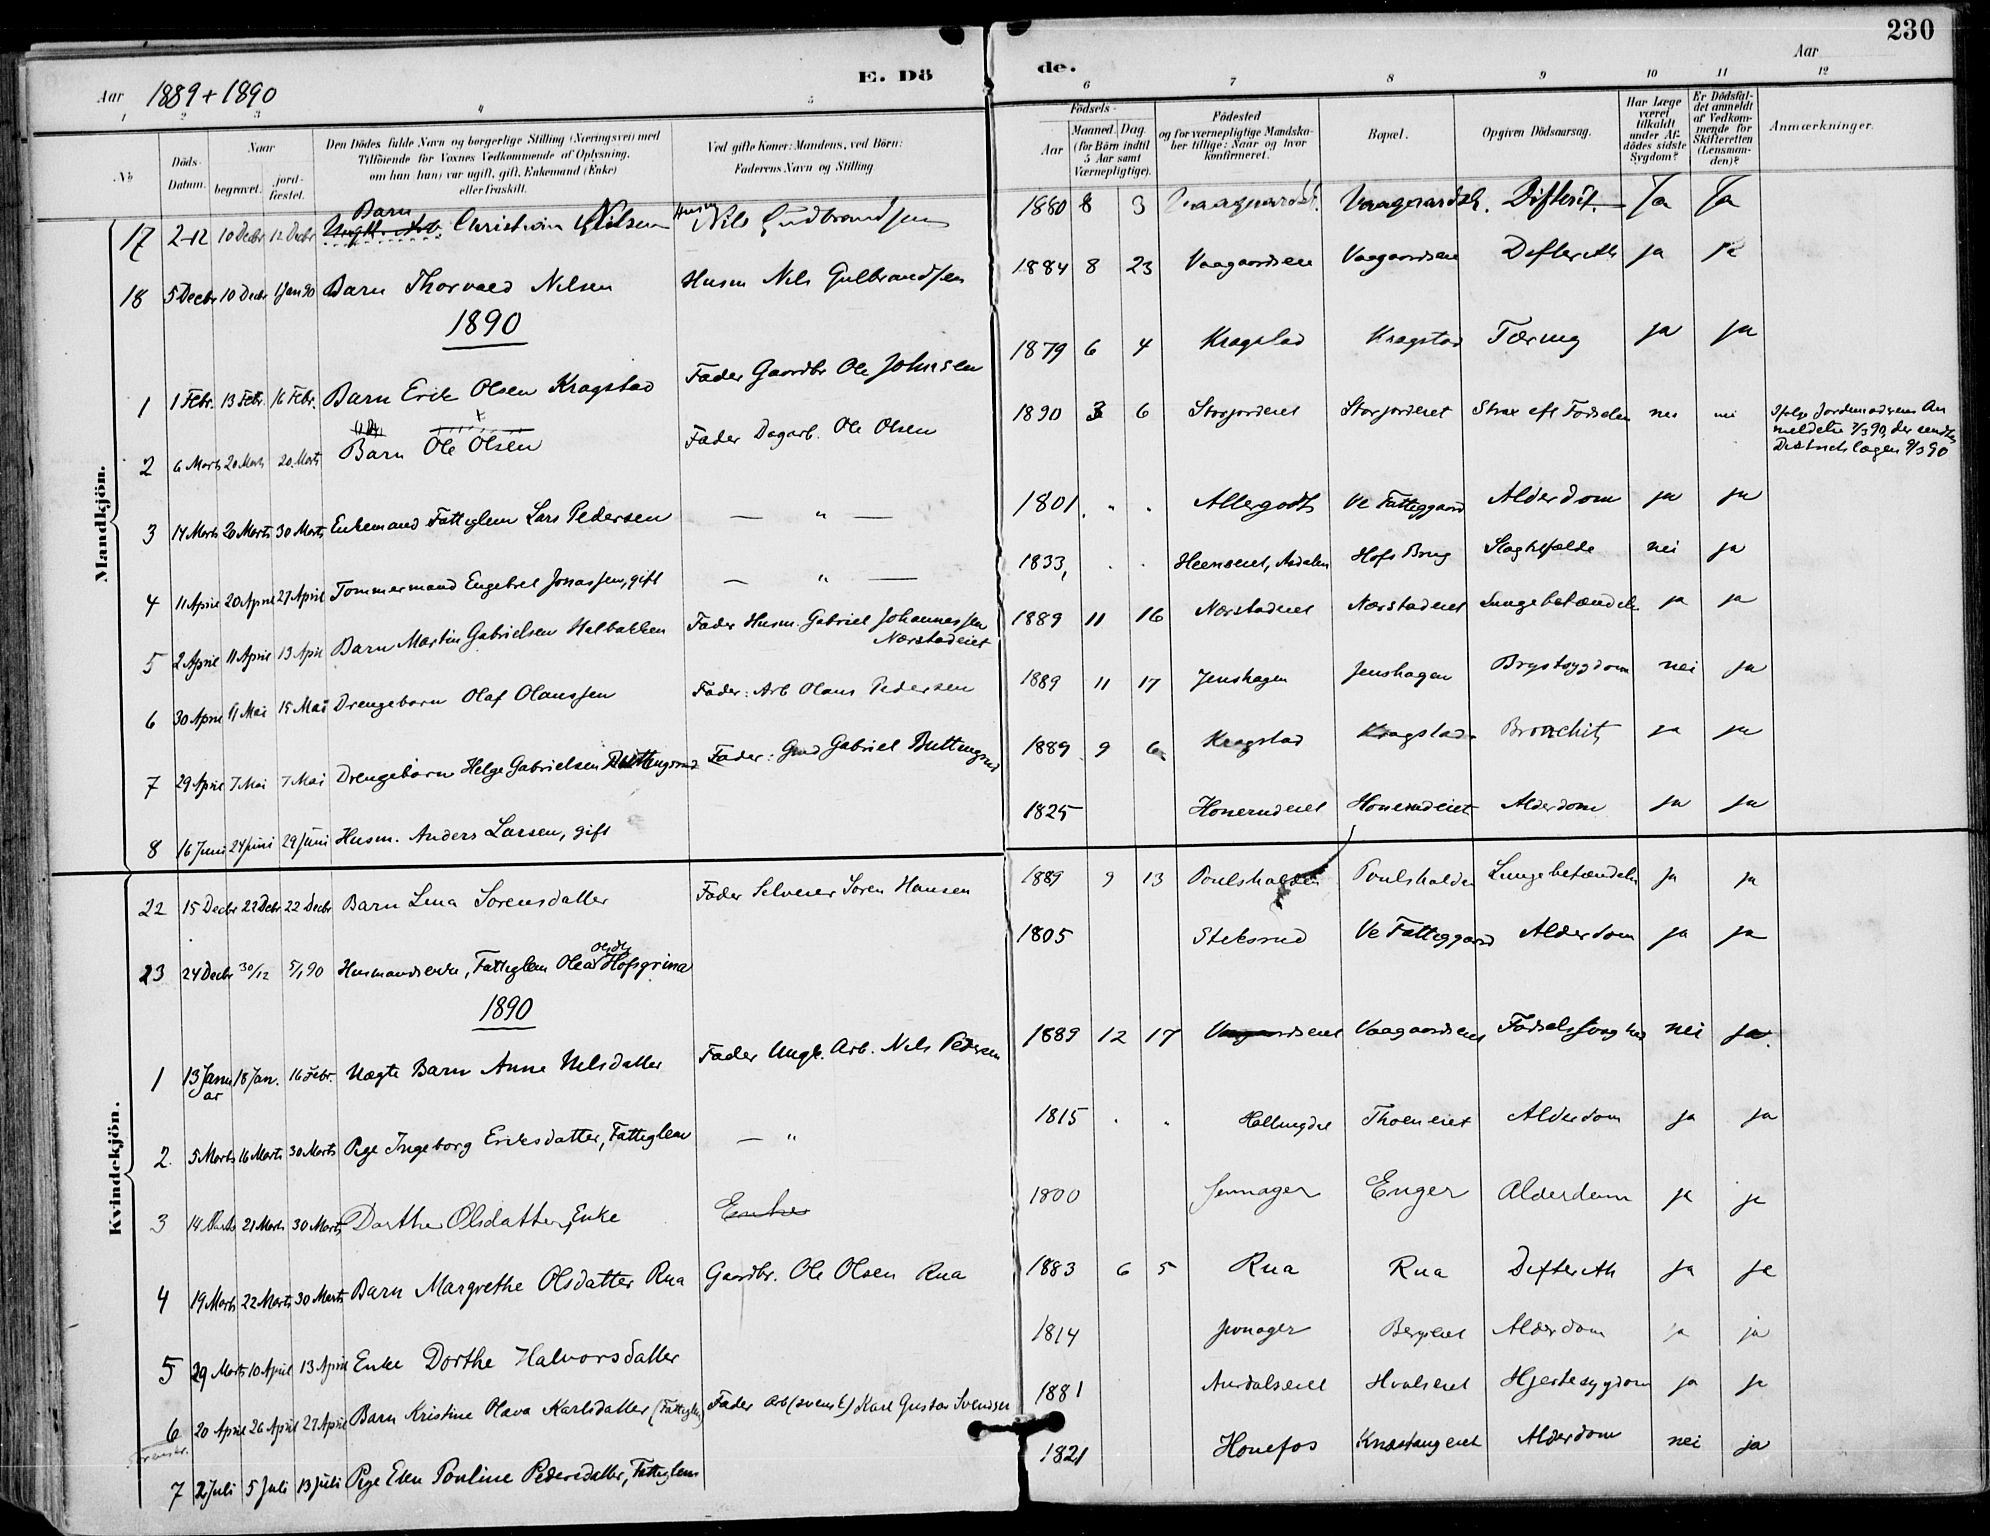 230
Aar 1889 + 1890
E. Dö de.
Aar
1 2 3 4 5 6 7 8 9 10 11 12
No
Döds-Datum.
Naar
begravet.
jord-fæstet.
Den Dödes fulde Navn og borgerlige Stilling (Næringsvei) med
Tilföiende för Voxnes Vedkommende af Oplysning,
om han (hun) var ugift, gift, Enkemand (Enke)
eller fraskilt.
Ved gifte Koner: Mandens, ved Börn:
Faderens Navn og Stilling
Födsels-
Aar
Maaned. Dag.
(for Börn indtil
5 Aar samt
Værnepligtige).
Födested
og for værnepligtige Mandska-
ber tillige: Naar og hvor
konfirmeret.
Bopæl.
Opgiven Dödsaarsag.
Har Læge
været
tilkaldt
under Af-
dödes sidste
Sygdom?
Er Dödsfal-
det anmeldt
af Vedkom-
mende for
Skifteretten
(Lensman-
den)?
Anmærkninger.
Mandkjön.
Barn
17 2-12 10 Decbr 12 Decbr Christian Nilsen Husm Nils Gudbrandsen 1880 8 3 Vaagaardsk. Difterit. Ja Ja
18 5 Decbr 10 Decbr 1 Jan 90 Barn Thorvald Nilsen Husm Nils Gulbrandsen 1884 8 23 Vaagaardseie Vaagaardseie Difterith ja ja
1890
1 1 Febr. 13 Febr. 16 Febr. Barn Erik Olsen Kragstad Fader Gaardbr Ole Johnsen 1879 6 4 Kragstad Kragstad Tæring ja ja
2 6 Marts 20 Marts 20 Marts Barn Ole Olsen Fader Dagarb. Ole Olsen 1890 3 6 Storjordeiet Storjordeiet Strax eft Fødselen nei nei Ifølge Jordemoderens An
meldelse 7/3 90, der sendtes
Districtslægen 9/3 90
3 14 Marts 20 Marts 30 Marts Enkemand Fattiglem Lars Pedersen — " — 1801. " . Allergodt Ve Fattiggaard Alderdom ja ja
4 11 April 20 April 27 April Tømmermand Engebret Jonassen, gift — " — 1833, . . Heenseiet, Aadalen Hofs Brug Slagtilfælde nei ja
5 2 April 11 April 13 April Barn Martin Gabrielsen Halbakken Fader Husm. Gabriel Johannessen
Nærstadeiet 1889 11 16 Nærstadeiet Nærstadeiet Lungebetændelse ja ja
6 30 April 11 Mai 15 Mai Drengebarn Olaf Olaussen Fader: Arb Olaus Pedersen 1889 11 17 Jenshagen Jenshagen Brystsygdom nei ja
7 29 April 7 Mai 7 Mai Drengebarn Helge Gabrielsen Buttingsrud Fader: Gmd Gabriel Buttingsrud 1889 9 6 Kragstad Kragstad Bronchit ja ja
8 16 Juni 24 Juni 29 Juni Husm. Anders Larsen, gift 1825 Honerudeiet Honerudeiet Alderdom ja ja
Kvindekjön.
22 15 Decbr 22 Decbr 22 Decbr Barn Lina Sørensdatter Fader Selveier Søren Hansen 1889 9 13 Poulshalden Poulshalden Lungebetændelse ja ja
23 24 Decbr 30/12 5/1 90 Husmandsenke, Fattiglem Olea Olsdtr Hofsgrina 1805 Steksrud Ve Fattiggaard Alderdom ja ja
1890
1 13 Januar 18 Jan. 16 Febr. Uægte Barn Anne Nilsdatter Fader Ungk. Arb. Nils Pedersen 1889 12 17 Vaagaardseiet Vaagaardseiet Fødselssvaghed nei ja.
2. 5 Marts 16 Marts 30 Marts Pige Ingeborg Eriksdatter, Fattiglem — " 1815 . . Hallingdal Thoeneiet Alderdom ja ja
3 14 Marts 21 Marts 30 Marts Dorthe Olsdatter, Enke Enke 1800 Jevnager Enger Alderdom ja ja
4 19 Marts 22 Marts 30 Marts Barn Margrethe Olsdatter Rua Gaardbr. Ole Olsen Rua 1883 6 5 Rua Rua Difterith ja ja
5 29 Marts 10 April 13 April Enke Dorthe Halvorsdatter 1814 Jevnager Bergseiet Alderdom ja ja
6 20 April 26 April 27 April Barn Kristine Olava Karlsdatter (Fattiglem) Fader Arb (svensk) Karl Gustav Svendsen 1881 Aurdalseiet Hvalseiet Hjertesygdom ja ja
7 2 Juli 5 Juli 13 Juli Pige Elen Pouline Pedersdatter, Fattiglem 1821 Hønefos Knæstangeiet Alderdom nei ja